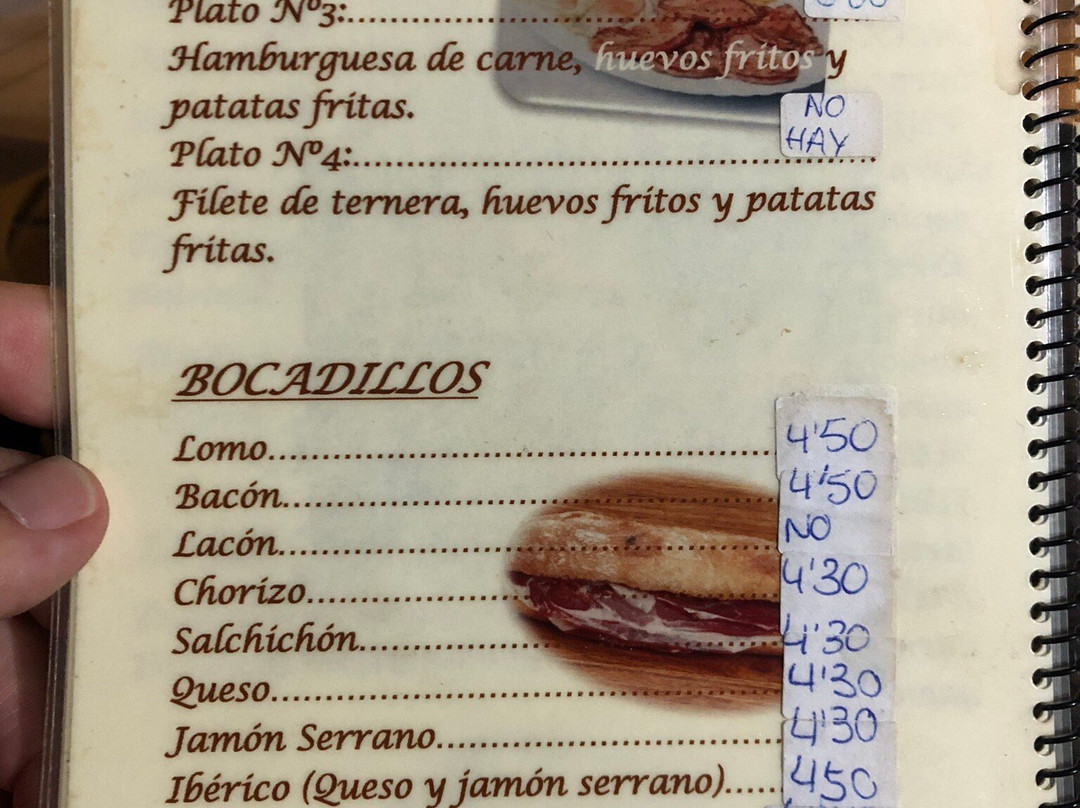 Plato Nº3:
Hamburguesa de carne, huevos fritos y
patatas fritas.
NO
HAY
Plato Nº4:
Filete de ternera, huevos fritos y patatas
fritas.
BOCADILLOS
Lomo 4'50
Bacón 4'50
Lacón NO
Chorizo 4'30
Salchichón 4'30
Queso 4'30
Jamón Serrano 4'30
Ibérico (Queso y jamón serrano) 450